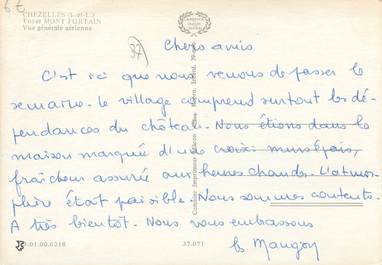 6€
CHEZELLES (I.-et-L.)
Vue générale aérienne
37
Chers amis
C'est ici que nous venons de passer la
semaine. le village comprend surtout les dé-
pendances du château. Nous étions dans la
maison marquée d'une croix. murs épais,
fraîcheur assurée aux heures chaudes. L'atmos-
phère était paisible. Nous sommes contents.
A très bientôt. Nous vous embrassons
les
01.00.6218
37.071